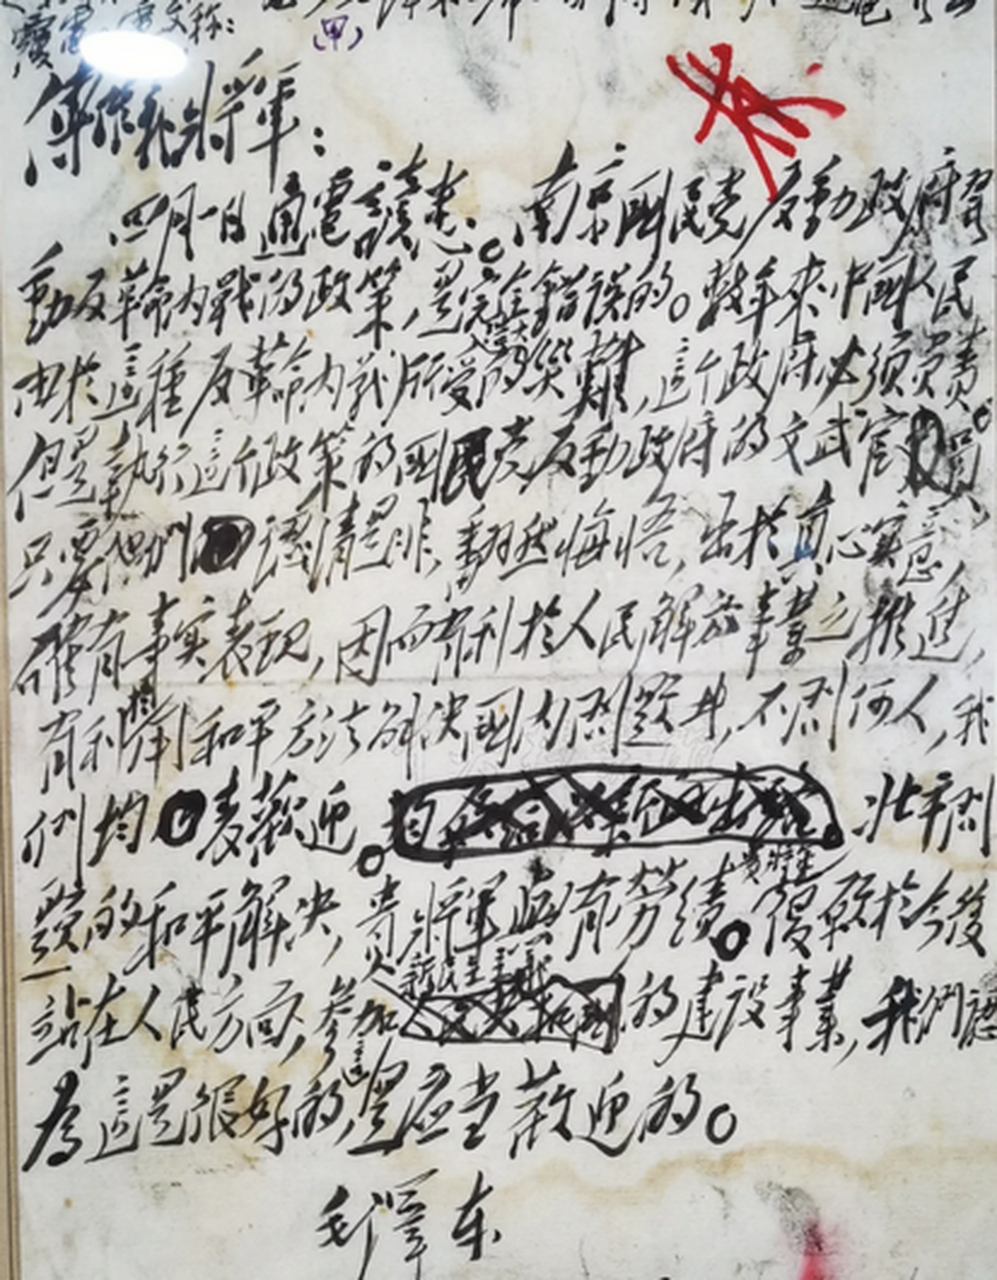 電文称：
（甲）
傅作義將軍：
四月一日通電讀悉。南京國民党反動政府發
動反革命内戰的政策，是完全錯誤的。数年來中國人民
由於這種反革命内戰所受的巨大災難，這个政府必須負責。
但是執行這个政策的國民党反動政府的文武官員，
只要他們認清是非，翻然悔悟，出於真心實意，
確有事实表現，因而有利於人民解放事業之推進，
有利於用和平方法解决國内问題者，不问何人，我
们均表歡迎。北平问
題的和平解决，貴將軍與有勞績。貴將軍復願於今後
站在人民方面，參加新民主主義的建設事業，我們認
為這是很好的，這是应当歡迎的。
毛澤东